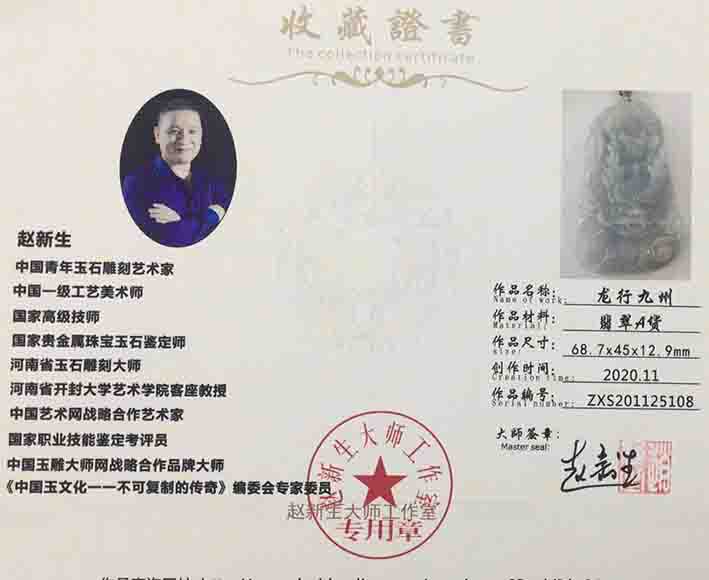 收藏證書
The collection certificate
赵新生
中国青年玉石雕刻艺术家
中国一级工艺美术师
国家高级技师
国家贵金属珠宝玉石鉴定师
河南省玉石雕刻大师
河南省开封大学艺术学院客座教授
中国艺术网战略合作艺术家
国家职业技能鉴定考评员
中国玉雕大师网战略合作品牌大师
《中国玉文化一一不可复制的传奇》编委会专家委员
作品名称: 龙行九州
Name of work:
作品材料: 翡翠A货
Material:
作品尺寸: 68.7x45x12.9mm
size:
创作时间: 2020.11
Creation time:
作品编号: ZXS201125108
Serial number:
大师签章:
Master seal:
赵新生
赵新生大师工作室
赵新生大师工作室
专用章